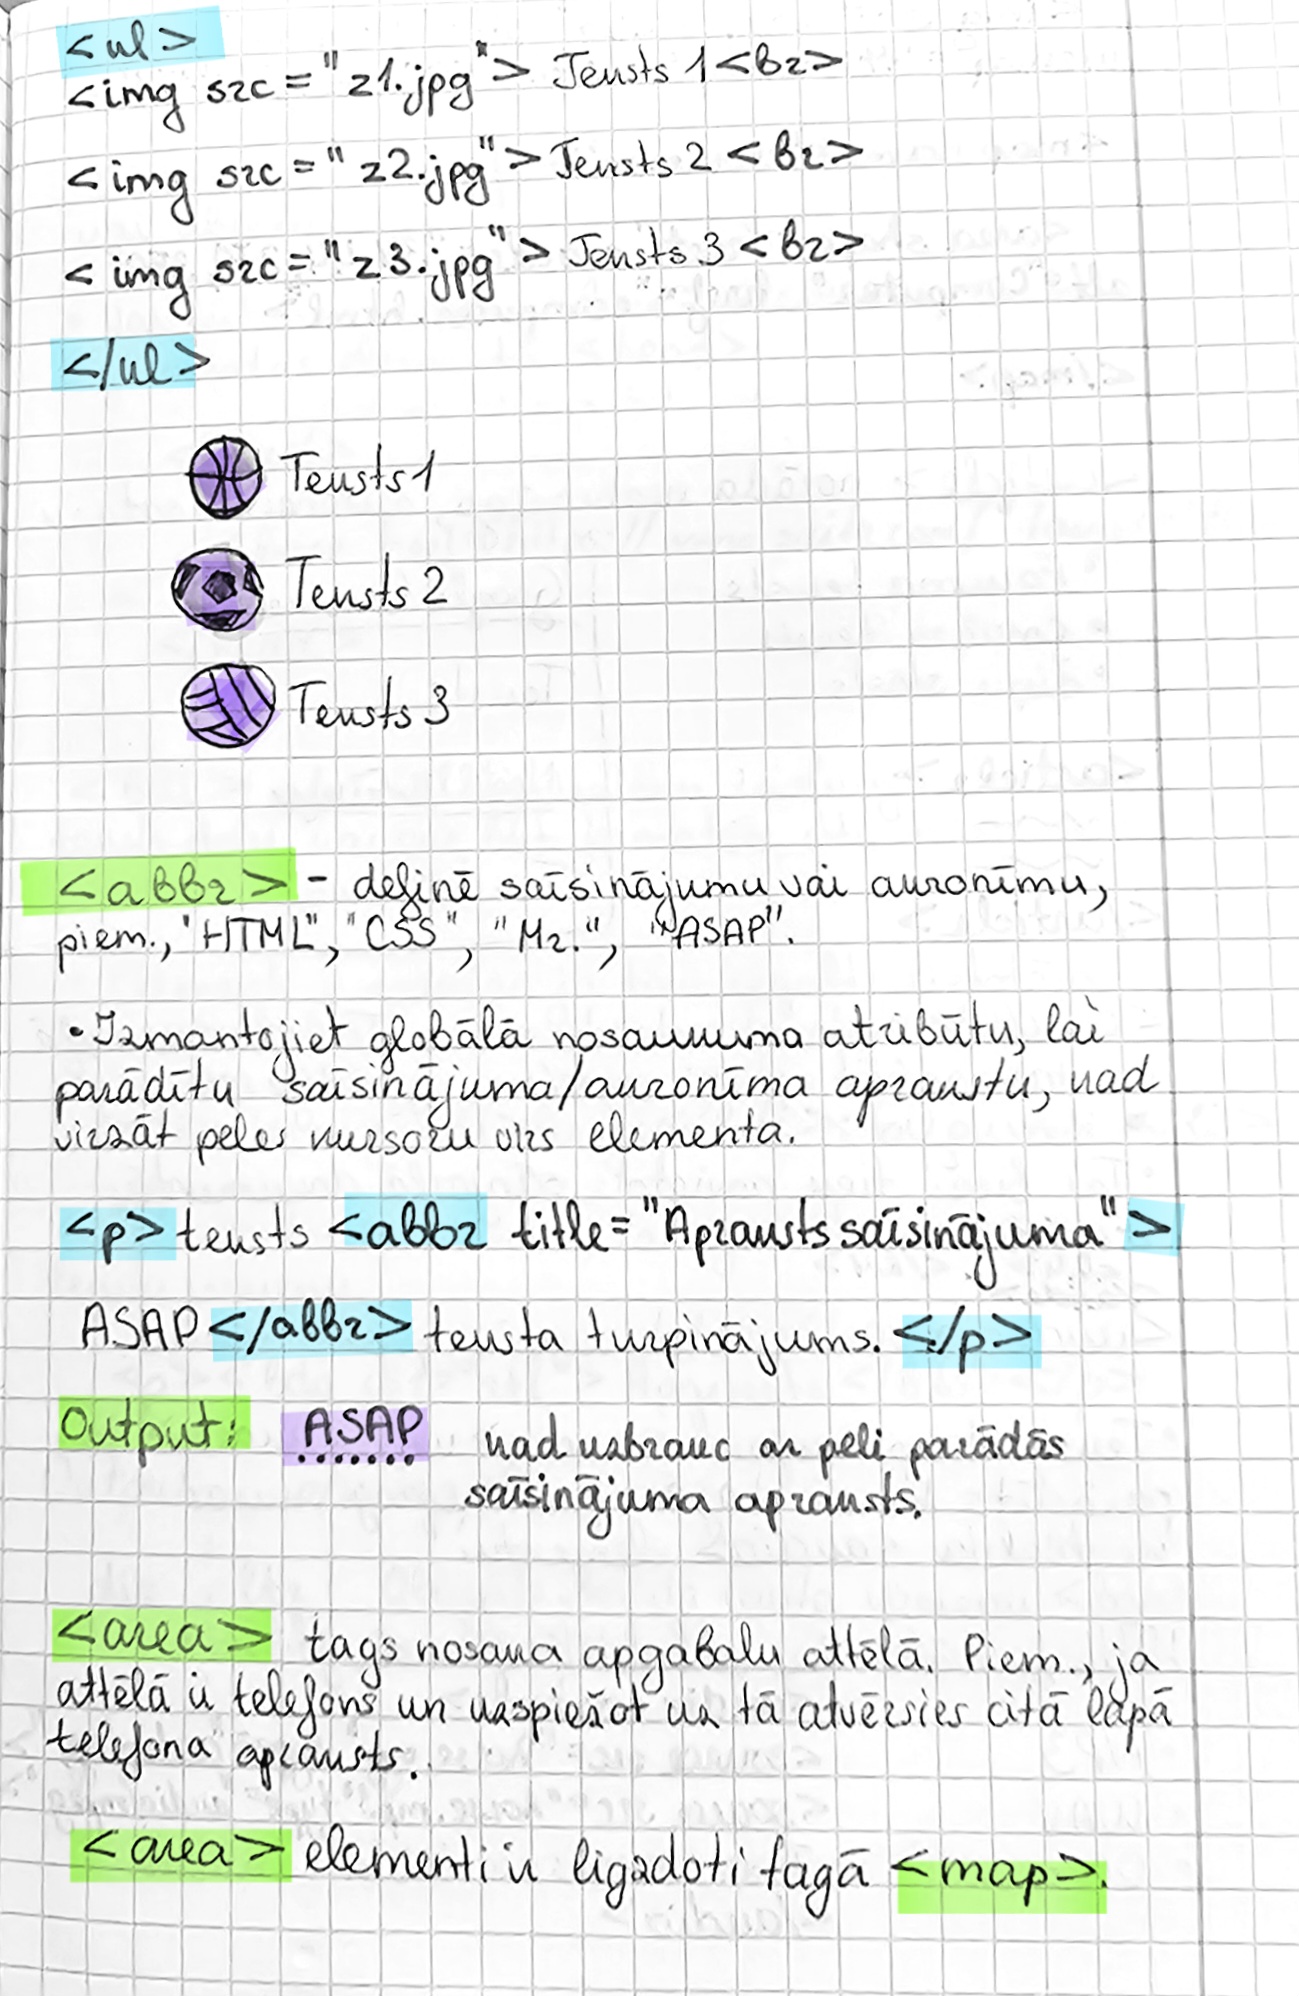 <ul>
<img src="z1.jpg"> Teksts 1<br>
<img src="z2.jpg"> Teksts 2 <br>
<img src="z3.jpg"> Teksts 3 <br>
</ul>
Teksts 1
Teksts 2
Teksts 3
<abbr> - definē saīsinājumu vai akronīmu,
piem., "HTML", "CSS", "Mr.", "ASAP".
• Izmantojiet globālā nosaukuma atribūtu, lai
parādītu saīsinājuma/akronīma aprakstu, kad
virzāt peles kursoru virs elementa.
<p> teksts <abbr title="Apraksts saīsinājuma">
ASAP </abbr> teksta turpinājums. </p>
Output: ASAP kad uzbrauc ar peli parādās
saīsinājuma apraksts.
<area> tags nosaka apgabalu attēlā. Piem., ja
attēlā ir telefons un uzspiežot uz tā atvērsies citā lapā
telefona apraksts.
<area> elementi ir ligzdoti tagā <map>.